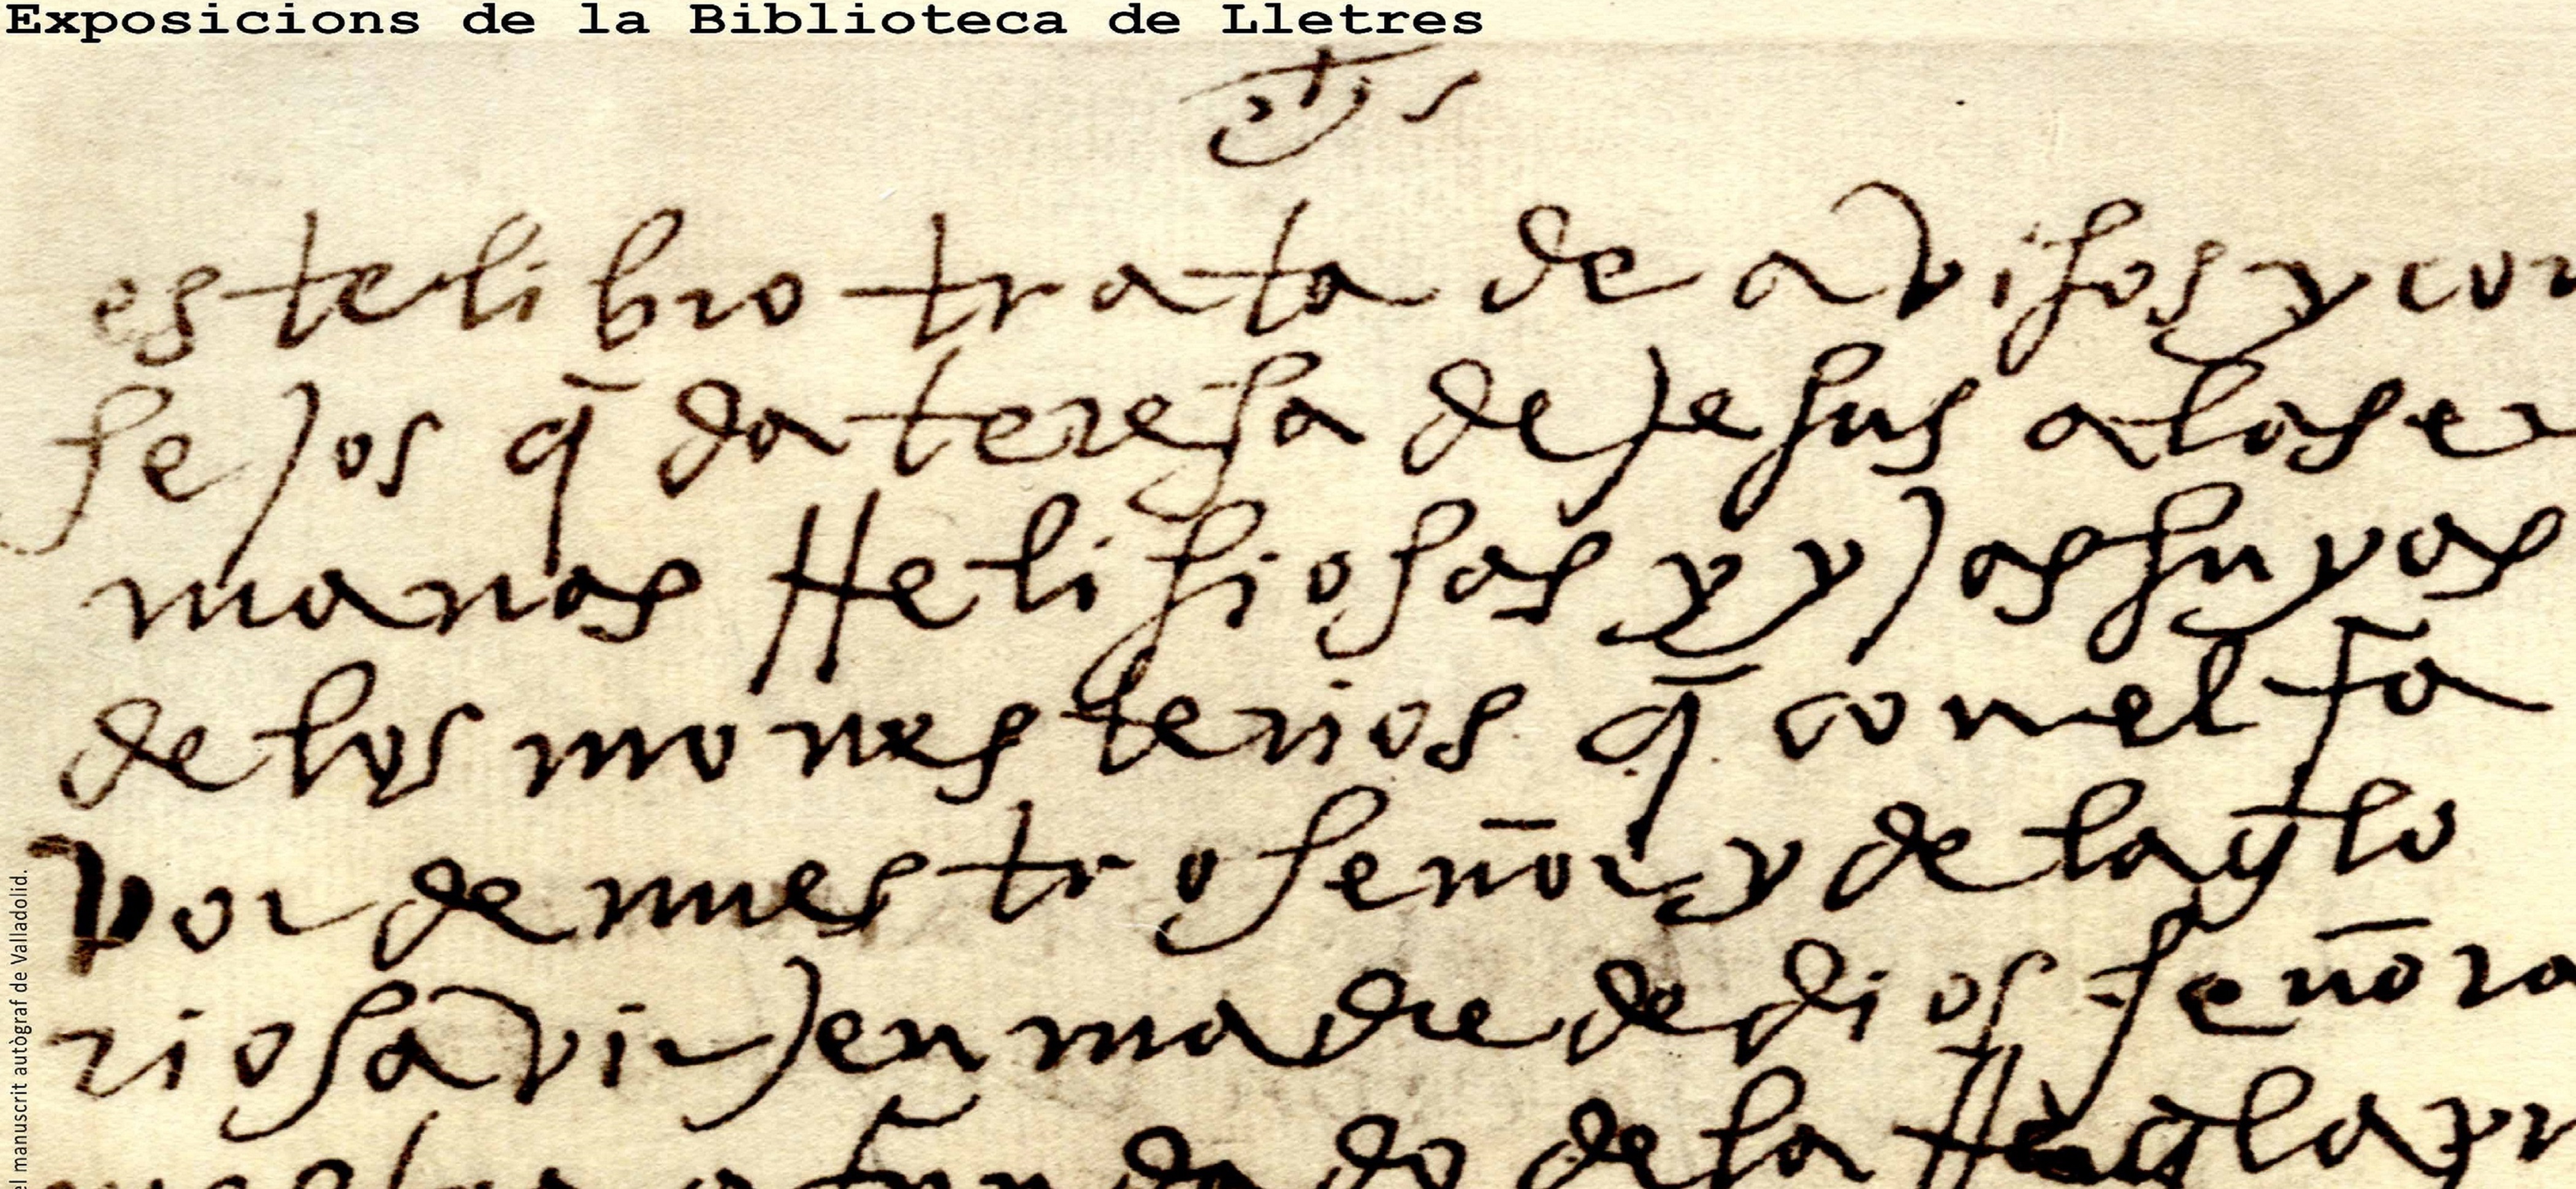 Exposicions de la Biblioteca de Lletres
jhs
este libro trata de avisos y con
sejos q̄ da teresa de jesus a las er
manas Relisiosas y yjas suyas
de los monesterios q̄ con el fa
vor de nuestro señor y de la glo
riosa virjen madre de dios señora
a fundado de la Regla
el manuscrit autògraf de Valladolid.